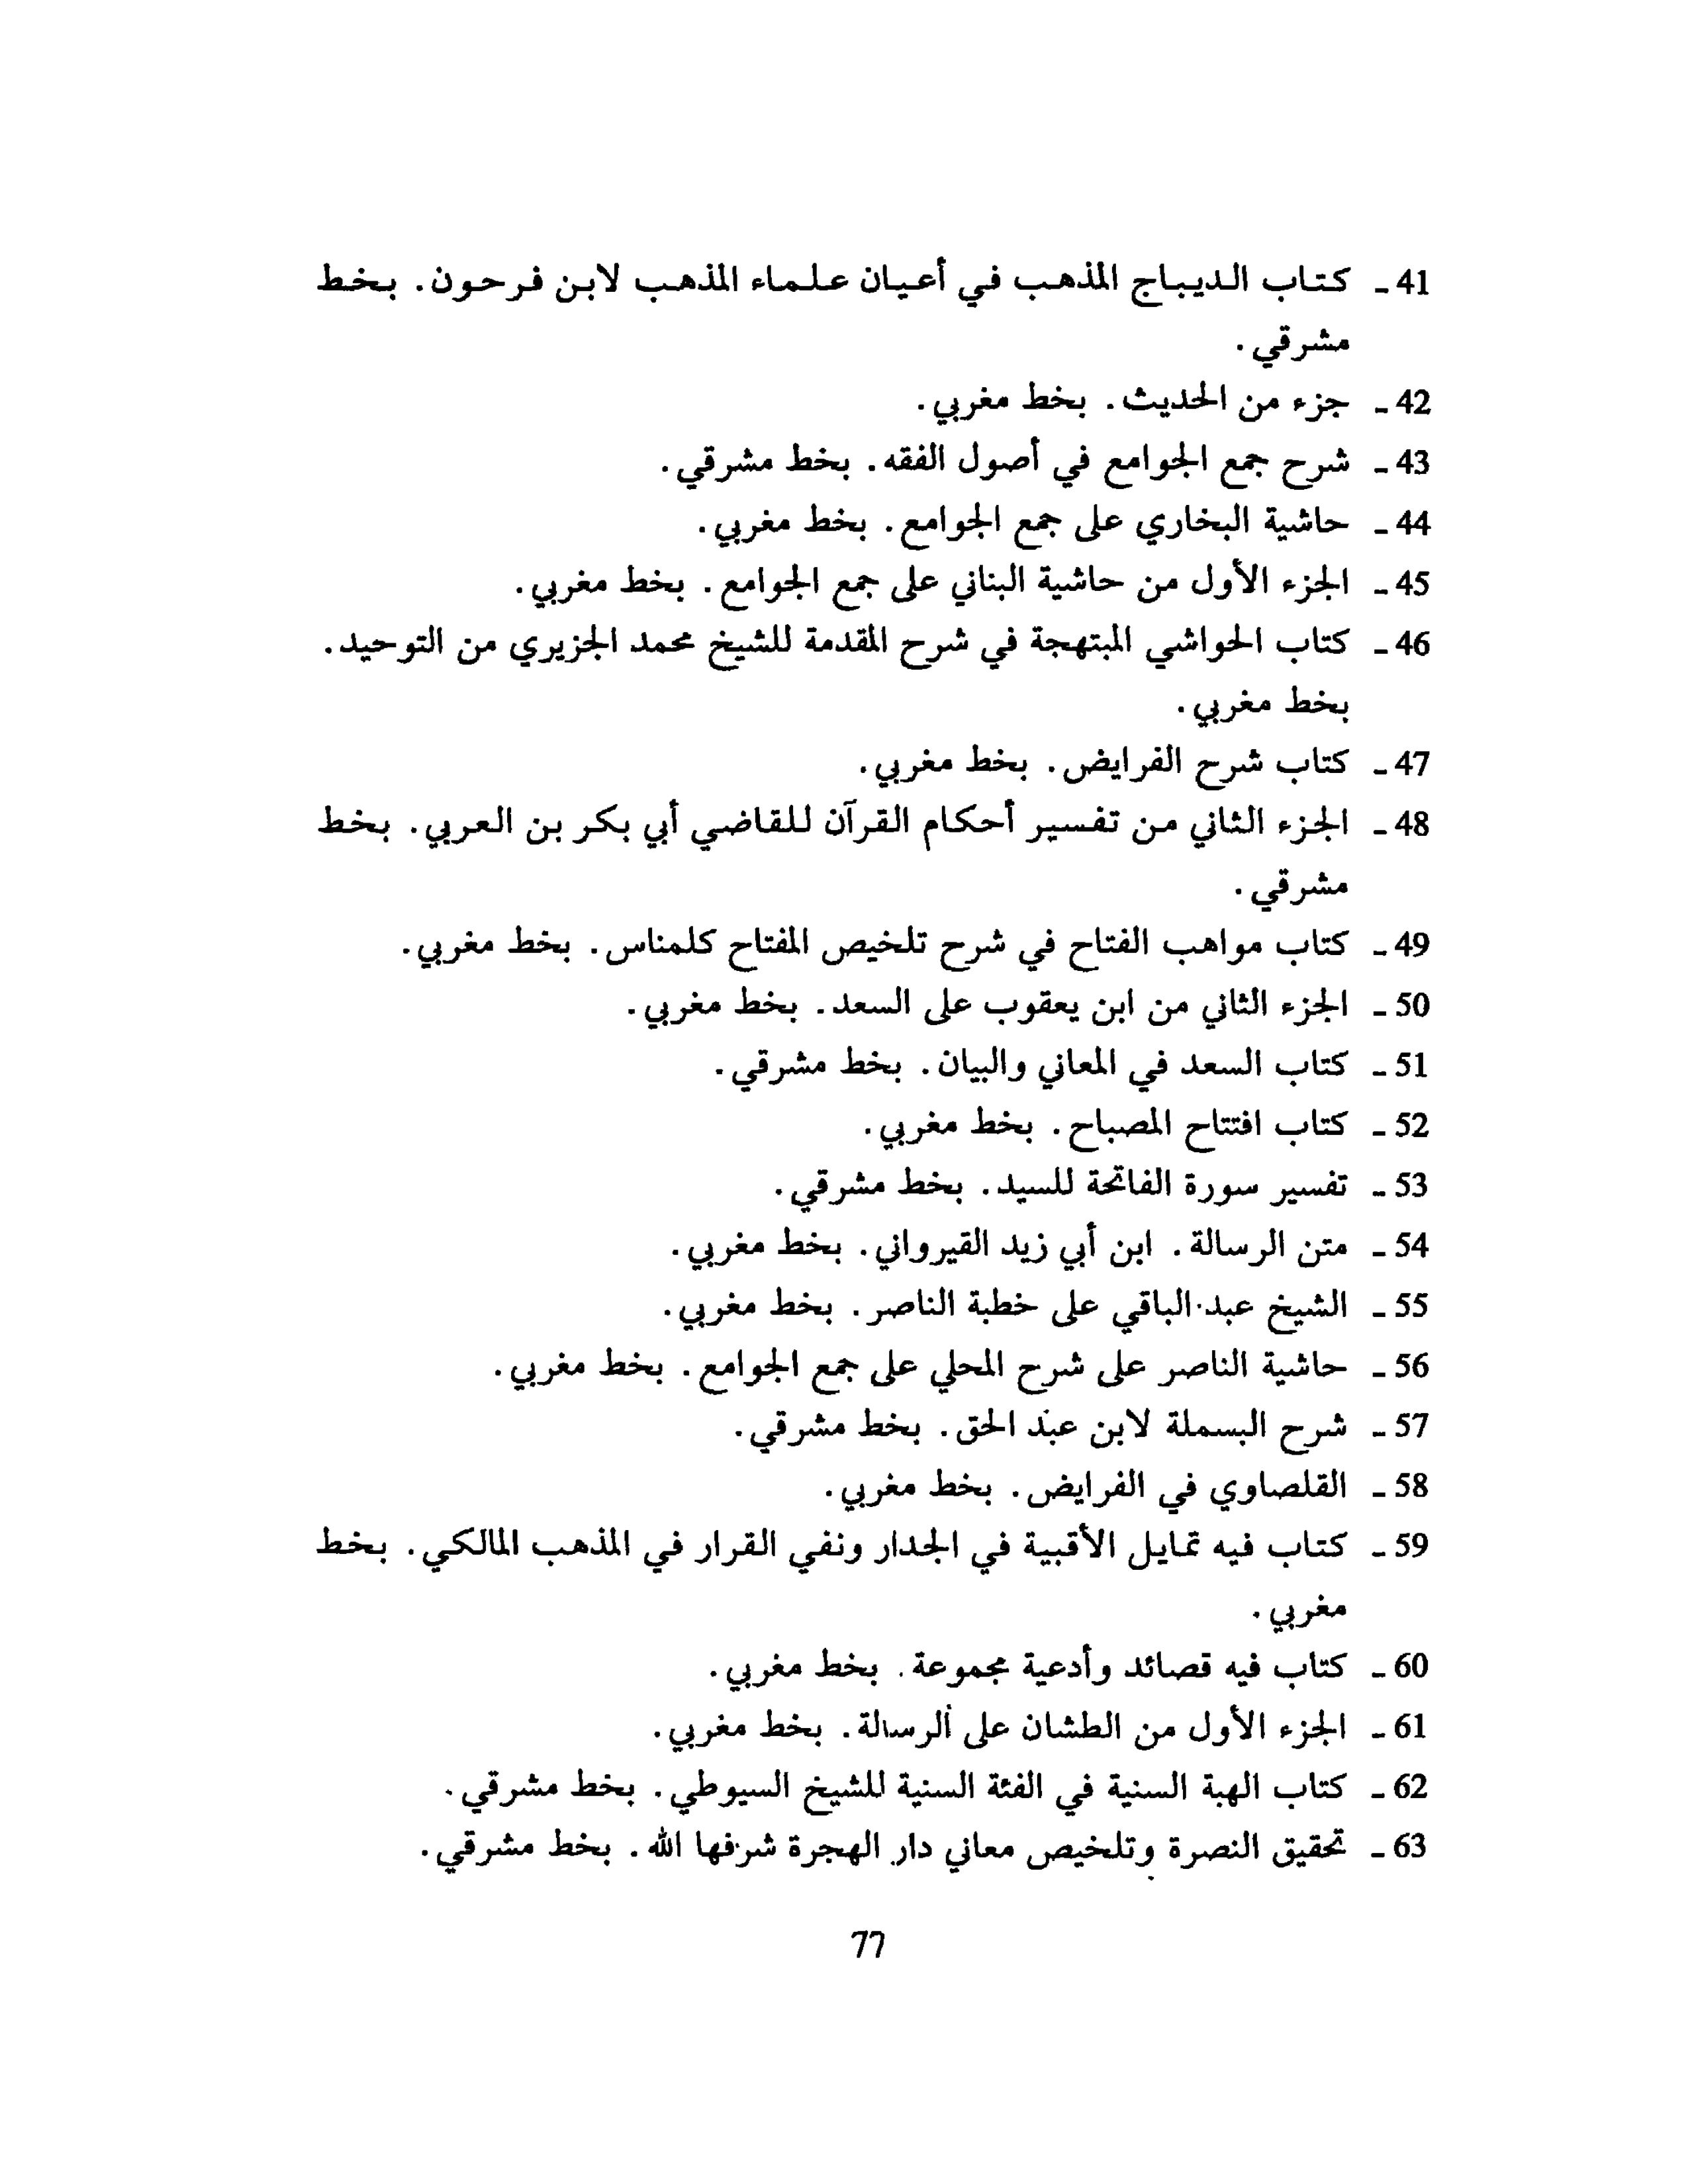 41 ـ كتاب الديباج المذهب في أعيان علماء المذهب لابن فرحون. بخط
مشرقي.
42 ـ جزء من الحديث. بخط مغربي.
43 ـ شرح جمع الجوامع في أصول الفقه. بخط مشرقي.
44 ـ حاشية البخاري على جمع الجوامع. بخط مغربي.
45 ـ الجزء الأول من حاشية البناني على جمع الجوامع. بخط مغربي.
46 ـ كتاب الحواشي المبتهجة في شرح المقدمة للشيخ محمد الجزيري من التوحيد.
بخط مغربي.
47 ـ كتاب شرح الفرايض. بخط مغربي.
48 ـ الجزء الثاني من تفسير أحكام القرآن للقاضي أبي بكر بن العربي. بخط
مشرقي.
49 ـ كتاب مواهب الفتاح في شرح تلخيص المفتاح كلمناس. بخط مغربي.
50 ـ الجزء الثاني من ابن يعقوب على السعد. بخط مغربي.
51 ـ كتاب السعد في المعاني والبيان. بخط مشرقي.
52 ـ كتاب افتتاح المصباح. بخط مغربي.
53 ـ تفسير سورة الفاتحة للسيد. بخط مشرقي.
54 ـ متن الرسالة. ابن أبي زيد القيرواني. بخط مغربي.
55 ـ الشيخ عبد الباقي على خطبة الناصر. بخط مغربي.
56 ـ حاشية الناصر على شرح المحلي على جمع الجوامع. بخط مغربي.
57 ـ شرح البسملة لابن عبد الحق. بخط مشرقي.
58 ـ القلصاوي في الفرايض. بخط مغربي.
59 ـ كتاب فيه تمايل الأقبية في الجدار ونفي القرار في المذهب المالكي. بخط
مغربي.
60 ـ كتاب فيه قصائد وأدعية مجموعة. بخط مغربي.
61 ـ الجزء الأول من الطشان على الرسالة. بخط مغربي.
62 ـ كتاب الهبة السنية في الفئة السنية للشيخ السيوطي. بخط مشرقي.
63 ـ تحقيق النصرة وتلخيص معاني دار الهجرة شرفها الله. بخط مشرقي.
77